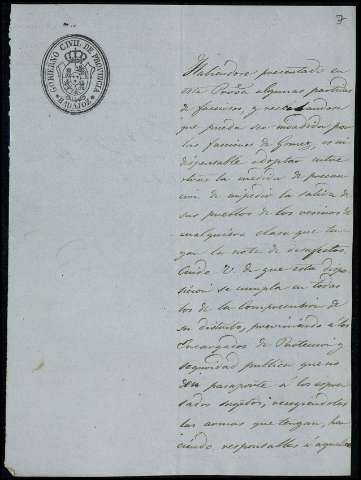 7
GOBIERNO CIVIL DE PROVINCIA
BADAJOZ
Habiendose presentado en
esta Prova algunas partidas
de facciosos, y recelandose
que pueda ser invadida por
las facciones de Gomez, es in
dispensable adoptar entre
otras la medida de precau
cion de impedir la salida
de sus pueblos de los vecinos de
cualquiera clase que ten
gan la nota de desafectos.
Cuide V. de que esta dispo
sicion se cumpla en todos
los de la comprension de
su distrito, previniendo a los
Encargados de Proteccion y
seguridad publica que no
den pasaporte a los espre
sados sugetos; recogiendoles
las armas que tengan, ha
ciendo responsables a aquellos